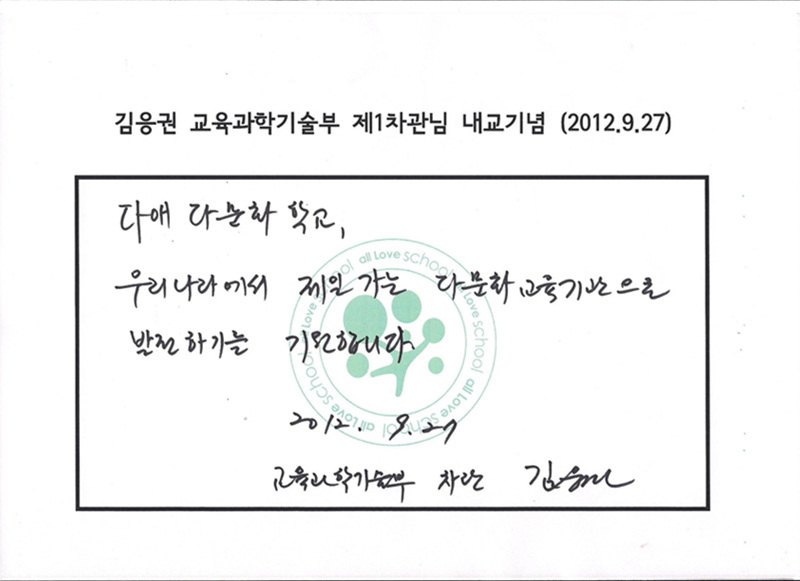 김응권 교육과학기술부 제1차관님 내교기념 (2012.9.27)
다애 다문화 학교,
우리나라에서 제일 가는 다문화 교육기관으로
발전하기를 기원합니다.
2012. 9. 27
교육과학기술부 차관 김응권
all Love school all Love school all Love school all Love school